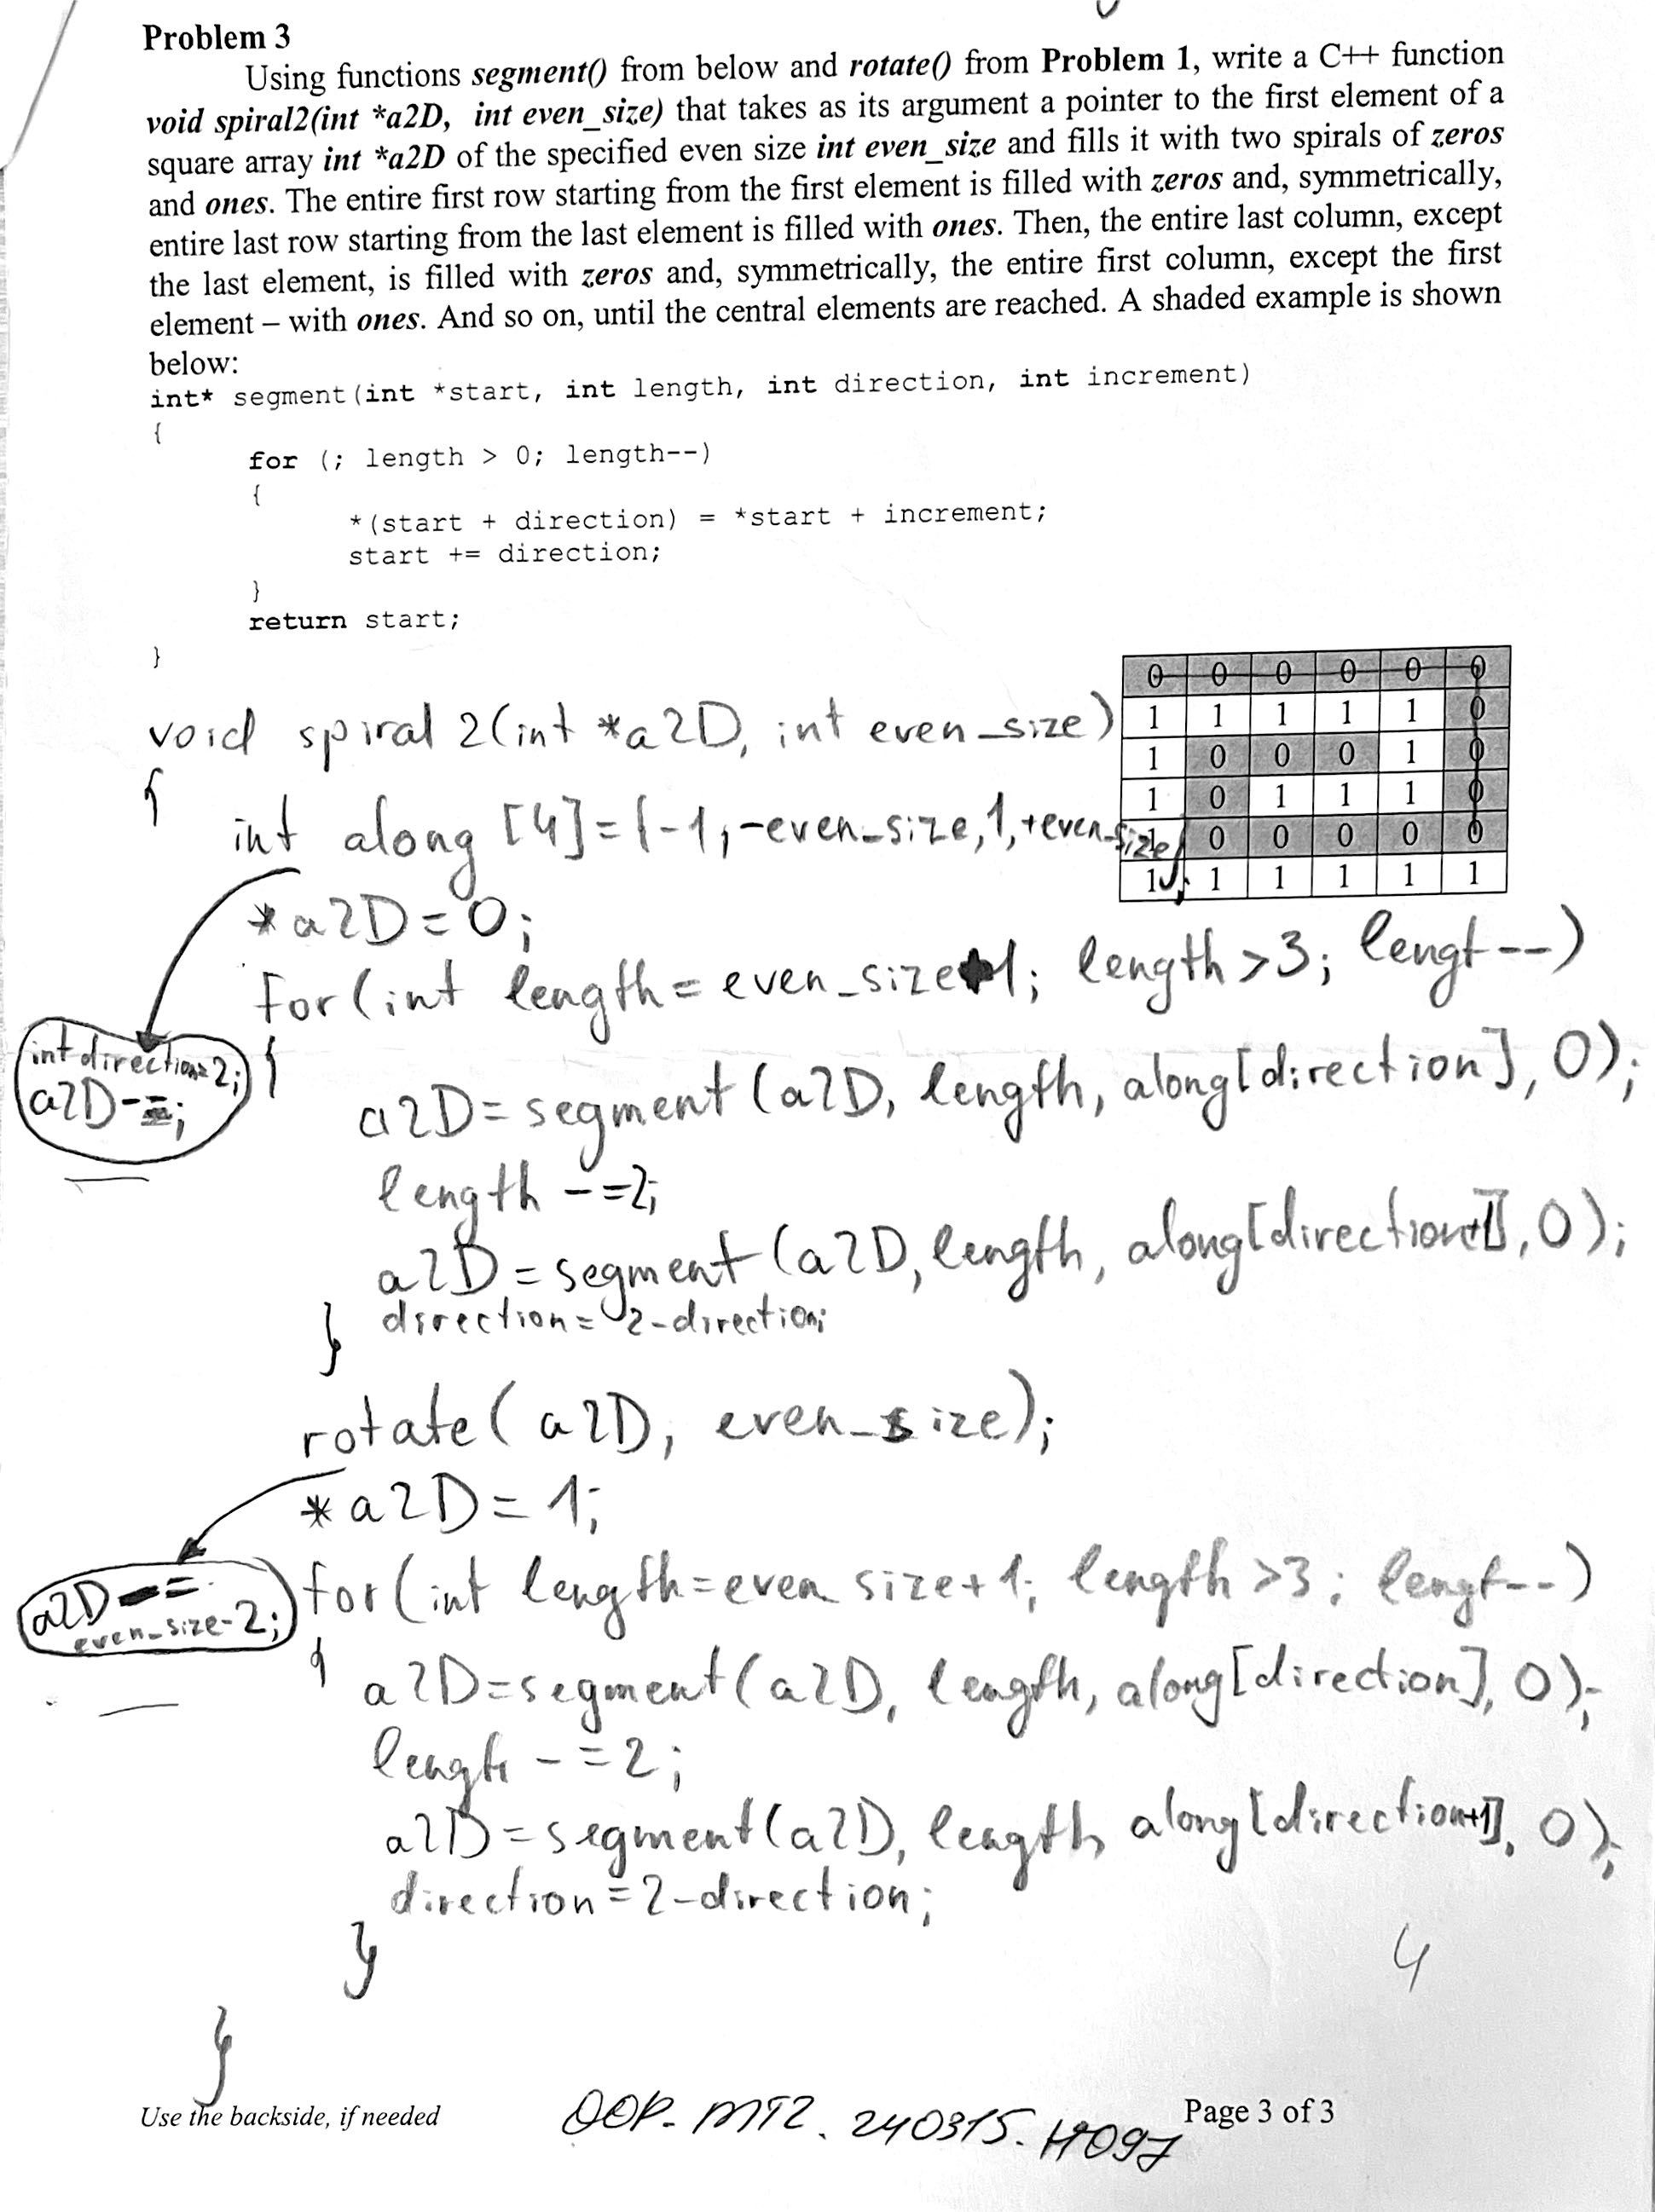 Problem 3
Using functions segment() from below and rotate() from Problem 1, write a C++ function
void spiral2(int *a2D, int even_size) that takes as its argument a pointer to the first element of a
square array int *a2D of the specified even size int even_size and fills it with two spirals of zeros
and ones. The entire first row starting from the first element is filled with zeros and, symmetrically,
entire last row starting from the last element is filled with ones. Then, the entire last column, except
the last element, is filled with zeros and, symmetrically, the entire first column, except the first
element – with ones. And so on, until the central elements are reached. A shaded example is shown
below:
int* segment(int *start, int length, int direction, int increment)
{
for (; length > 0; length--)
{
*(start + direction) = *start + increment;
start += direction;
}
return start;
}
0 0 0 0 0 0
1 1 1 1 1 0
1 0 0 0 1 0
1 0 1 1 1 0
0 0 0 0 0
1 1 1 1 1 1
void spiral 2(int *a2D, int even_size)
{
int along [4]={-1,-even_size,1,+even_size};
*a2D=0;
int direction=2;
a2D-=;
for(int length=even_size+1; length>3; lengt--)
{
a2D=segment(a2D, length, along[direction], 0);
length -=2;
a2D=segment(a2D, length, along[direction+1], 0);
direction=2-direction;
}
rotate(a2D, even_size);
*a2D=1;
a2D-=
even_size-2;
for(int length=even size+1; length>3; lengt--)
{
a2D=segment(a2D, length, along[direction], 0);
lengh -=2;
a2D=segment(a2D, length, along[direction+1], 0);
direction=2-direction;
}
4
}
Use the backside, if needed
OOP. MT2. 240315.
Page 3 of 3